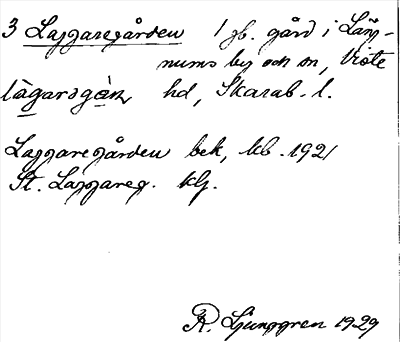 3 Laggaregården 1 gb. gård i Läng-
nums by och sn, Viste
làgarəgǻn hd, Skarab. l.
Laggaregården bek, kb. 1921
St. Laggareg. klj.
R. Ljunggren 1929